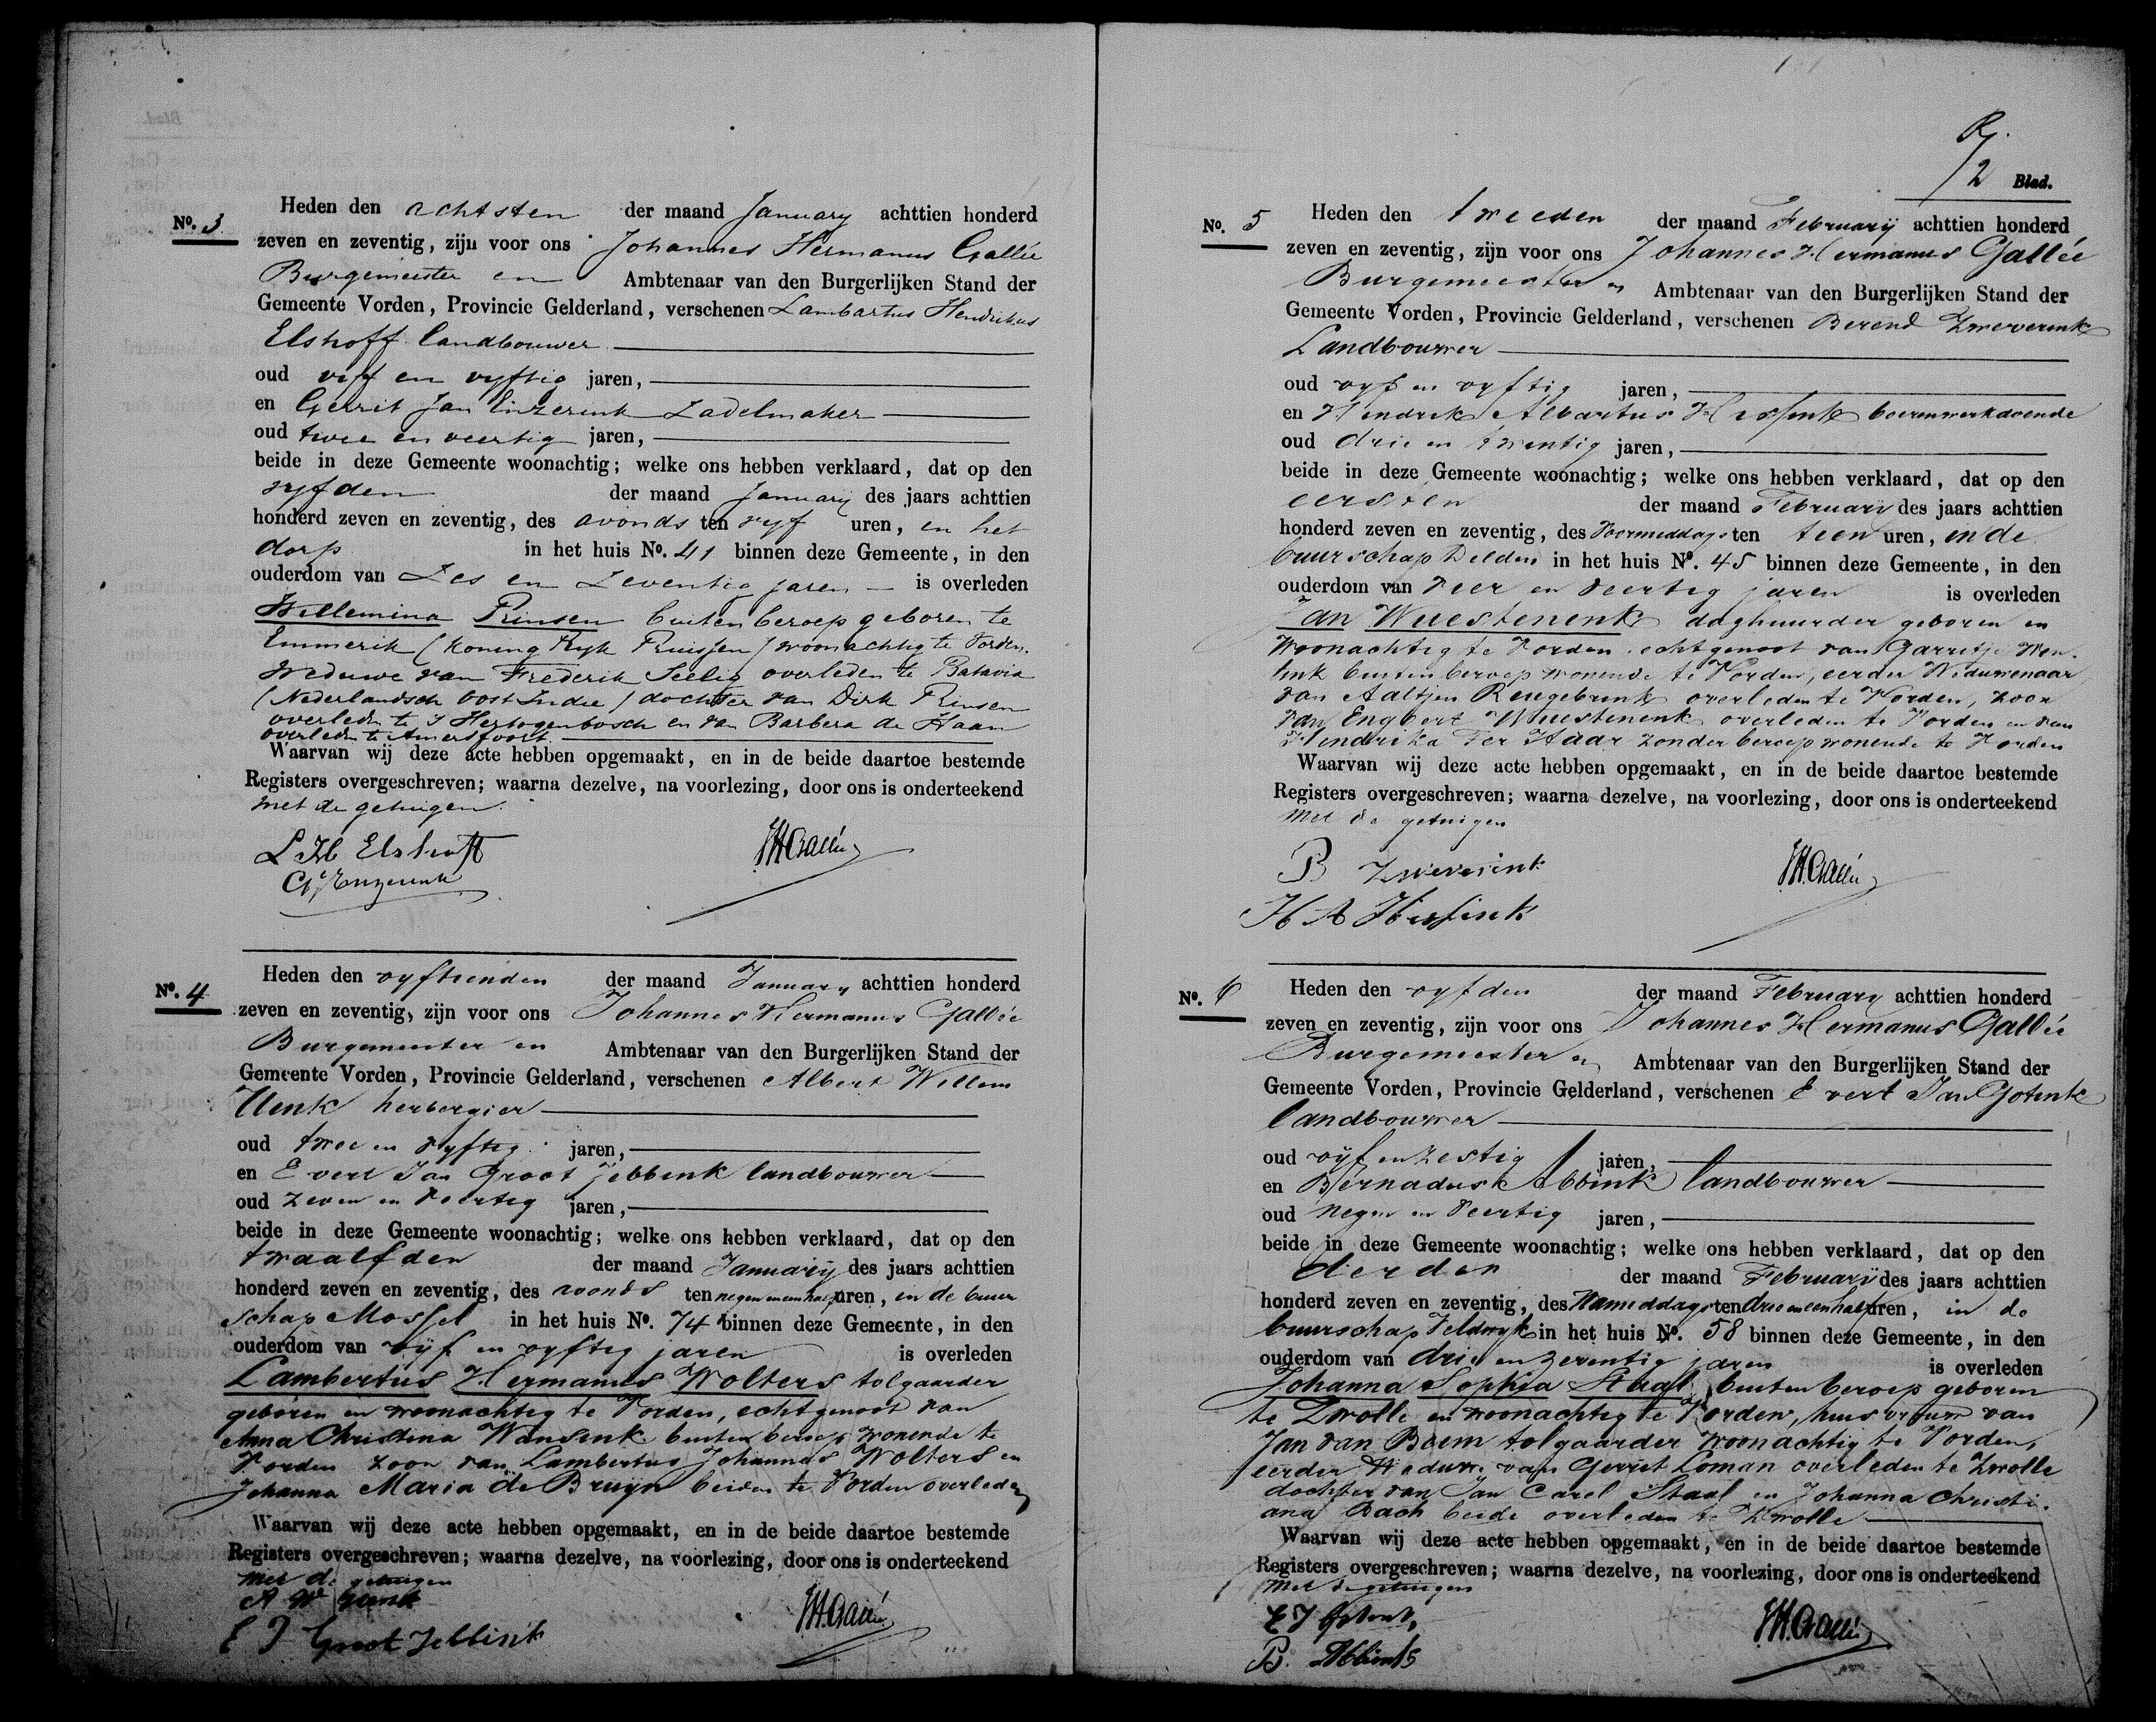 No. 3
Heden den achtsten der maand January achttien honderd
zeven en zeventig, zijn voor ons Johannes Hermanus Gallée
Burgemeester en Ambtenaar van den Burgerlijken Stand der
Gemeente Vorden, Provincie Gelderland, verschenen Lambartus Hendrikus
Elshoff landbouwer
oud vijf en vyftig jaren,
en Gerrit Jan Enzerink Zadelmaker
oud twee en veertig jaren,
beide in deze Gemeente woonachtig; welke ons hebben verklaard, dat op den
vyfden der maand January des jaars achttien
honderd zeven en zeventig, des avonds ten vyf uren, in het
dorp in het huis No. 41 binnen deze Gemeente, in den
ouderdom van Zes en Zeventig jaren is overleden
Willemina Prinsen buiten beroep geboren te
Emmerik (Koning Ryk Pruissen) woonachtig te Vorden,
weduwe van Frederik Seelig overleden te Batavia
(Nederlandsch Oost Indie) dochter van Dirk Prinsen
overleden te s Hertogenbosch en van Barbera de Haan
overleden te Amersfoort
Waarvan wij deze acte hebben opgemaakt, en in de beide daartoe bestemde
Registers overgeschreven; waarna dezelve, na voorlezing, door ons is onderteekend
met de getuigen.
L H Elshoff JHGallée
GJ Enzerink
No. 4
Heden den vyftienden der maand January achttien honderd
zeven en zeventig, zijn voor ons Johannes Hermanus Gallée
Burgemeester en Ambtenaar van den Burgerlijken Stand der
Gemeente Vorden, Provincie Gelderland, verschenen Albert Willem
Uenk herbergier
oud twee en vyftig jaren,
en Evert Jan Groot Jebbink landbouwer
oud zeven en veertig jaren,
beide in deze Gemeente woonachtig; welke ons hebben verklaard, dat op den
twaalfden der maand January des jaars achttien
honderd zeven en zeventig, des avonds ten negen en een half uren, in de buur
schap Mossel in het huis No. 74 binnen deze Gemeente, in den
ouderdom van vijf en vyftig jaren is overleden
Lambertus Hermanus Wolters tolgaarder
geboren en woonachtig te Vorden, echtgenoot van
Anna Christina Wansink buiten beroep wonende te
Vorden zoon van Lambertus Johannes Wolters en
Johanna Maria de Bruijn beiden te Vorden overleden
Waarvan wij deze acte hebben opgemaakt, en in de beide daartoe bestemde
Registers overgeschreven; waarna dezelve, na voorlezing, door ons is onderteekend
met de getuigen
A W Uenk JHGallée
E J Groot Jebbink
2 Blad.
No. 5
Heden den tweeden der maand Februarij achttien honderd
zeven en zeventig, zijn voor ons Johannes Hermanus Gallée
Burgemeester en Ambtenaar van den Burgerlijken Stand der
Gemeente Vorden, Provincie Gelderland, verschenen Berend Zweverink
Landbouwer
oud vyf en vyftig jaren,
en Hendrik Albartus Hissink boerenwerkdoende
oud drie en twentig jaren,
beide in deze Gemeente woonachtig; welke ons hebben verklaard, dat op den
eersten der maand Februarij des jaars achttien
honderd zeven en zeventig, des Voormiddags ten tien uren, in de
buurschap Delden in het huis No. 45 binnen deze Gemeente, in den
ouderdom van vier en veertig jaren is overleden
Jan Wuestenenk daghuurder geboren en
woonachtig te Vorden, echtgenoot van Garritje Wen-
tink buiten beroep wonende te Vorden, eerder Weduwenaar
van Aaltjen Rengebrink overleden te Vorden, zoon
van Engbert Wuestenenk overleden te Vorden en van
Hendrika Ter Haar zonder beroep wonende te Vorden
Waarvan wij deze acte hebben opgemaakt, en in de beide daartoe bestemde
Registers overgeschreven; waarna dezelve, na voorlezing, door ons is onderteekend
met de getuigen
B Zweverink JHGallée
H A Hissink
No. 6
Heden den vyfden der maand February achttien honderd
zeven en zeventig, zijn voor ons Johannes Hermanus Gallée
Burgemeester en Ambtenaar van den Burgerlijken Stand der
Gemeente Vorden, Provincie Gelderland, verschenen Evert Jan Gotink
landbouwer
oud vijf en zestig jaren,
en Bernadus Abbink landbouwer
oud negen en veertig jaren,
beide in deze Gemeente woonachtig; welke ons hebben verklaard, dat op den
derden der maand Februarij des jaars achttien
honderd zeven en zeventig, des Namiddags ten drie en een half uren, in de
buurschap Veldwyk in het huis No. 58 binnen deze Gemeente, in den
ouderdom van drie en zeventig jaren is overleden
Johanna Sophia Staal buiten beroep geboren
te Zwolle en woonachtig te Vorden, huisvrouw van
Jan van Boem tolgaarder woonachtig te Vorden,
eerder Weduwe van Gerrit Loman overleden te Zwolle
dochter van Jan Carel Staal en Johanna Christi-
ana Bach beide overleden te Zwolle
Waarvan wij deze acte hebben opgemaakt, en in de beide daartoe bestemde
Registers overgeschreven; waarna dezelve, na voorlezing, door ons is onderteekend
met de getuigen
E J Gotink JHGallée
B. Abbink